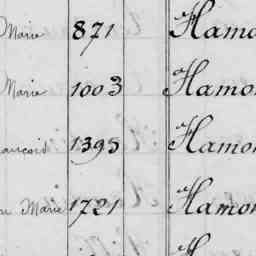 Marie 871 Hamo
Marie 1003 Hamo
ancois 1395 Hamo
Marie 1721 Hamo